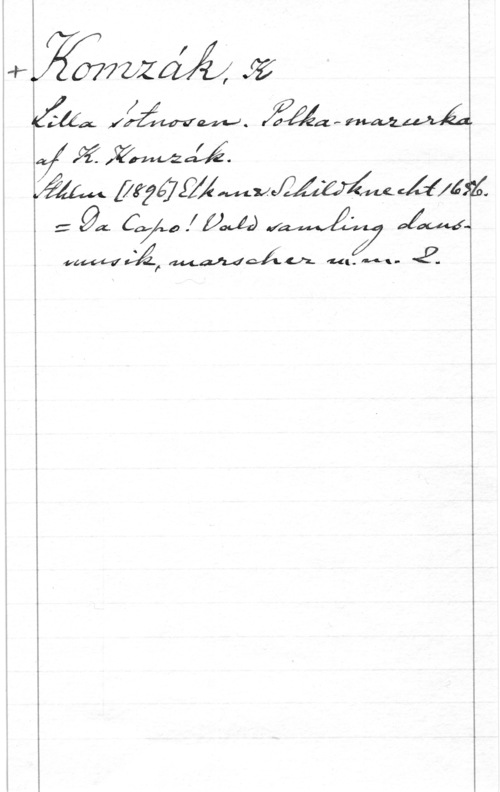 + Komzák, K
Lilla sötnosen. Polka-mazurka
af K. Komzák.
Sthlm [1896] Elkan & Schildknecht 1686.
= Da Capo! Vald samling dans-
musik, marscher m.m. 2.